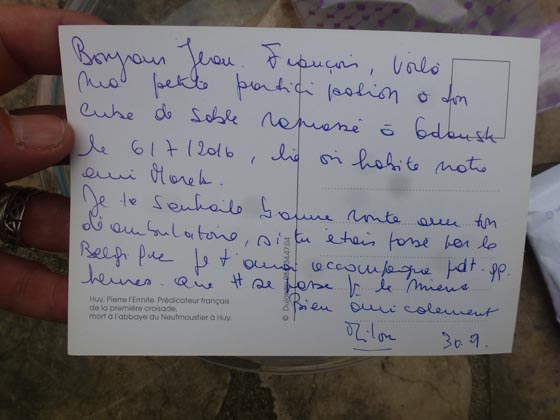 Bonjour Jean-François, Voilà
ma petite participation à ton
cube de sable ramassé à Gdansk
le 6/7/2016, là où habite notre
ami Marek.
Je te souhaite bonne route avec ton
déambulatoire, si tu étais passé par la
Belgique je t'aurai accompagné pdt. qq.
heures. que tt se passe le mieux
Bien amicalement
30.9.
Huy, Pierre l'Ermite. Prédicateur français
de la première croisade,
mort à l'abbaye du Neufmoustier à Huy.